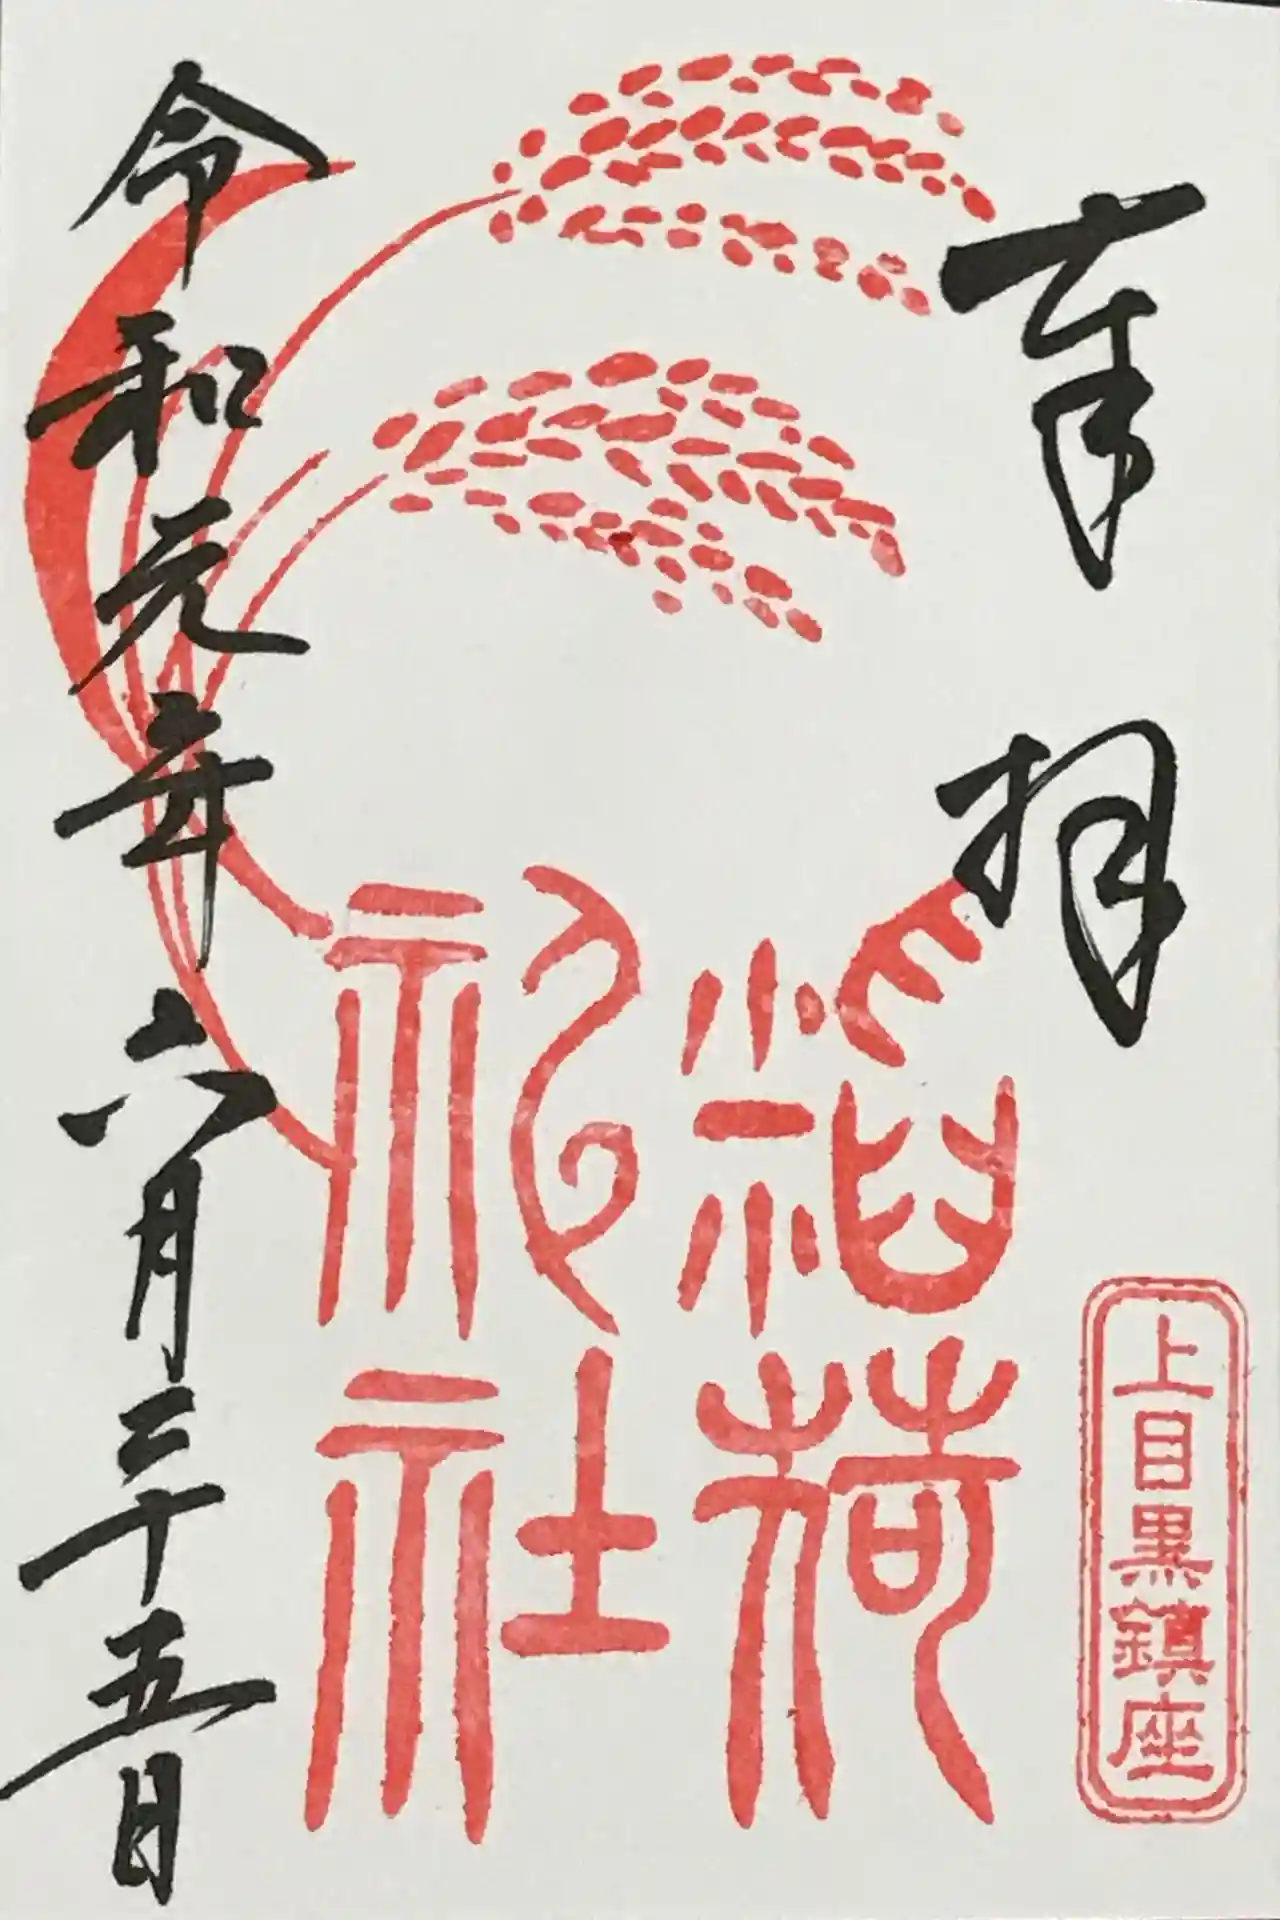 奉拝
上目黒鎮座
稲荷
神社
令和元年六月二十五日